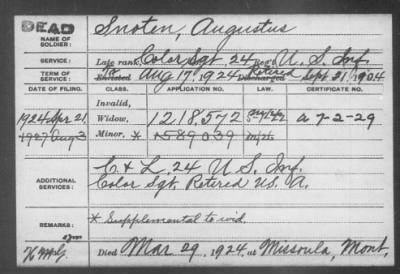 DEAD
Snoten, Augustus
NAME OF SOLDIER:
SERVICE: Late rank, Color Sgt. 24 Reg't U. S. Inf.
TERM OF SERVICE: Enlisted To Aug 17, 1924, Discharged Retired Sept 21, 1904
DATE OF FILING. CLASS. APPLICATION NO. LAW. CERTIFICATE NO.
Invalid,
1924 Apr 21. Widow, 1218,572 a 7-2-29
1927 Aug 3 Minor, * 1589039
ADDITIONAL SERVICES: C. & L, 24 U. S. Inf.
Color Sgt. Retired U.S. A.
REMARKS: * Supplemental to wid.
Died Mar 29, 1924, at Missoula, Mont.